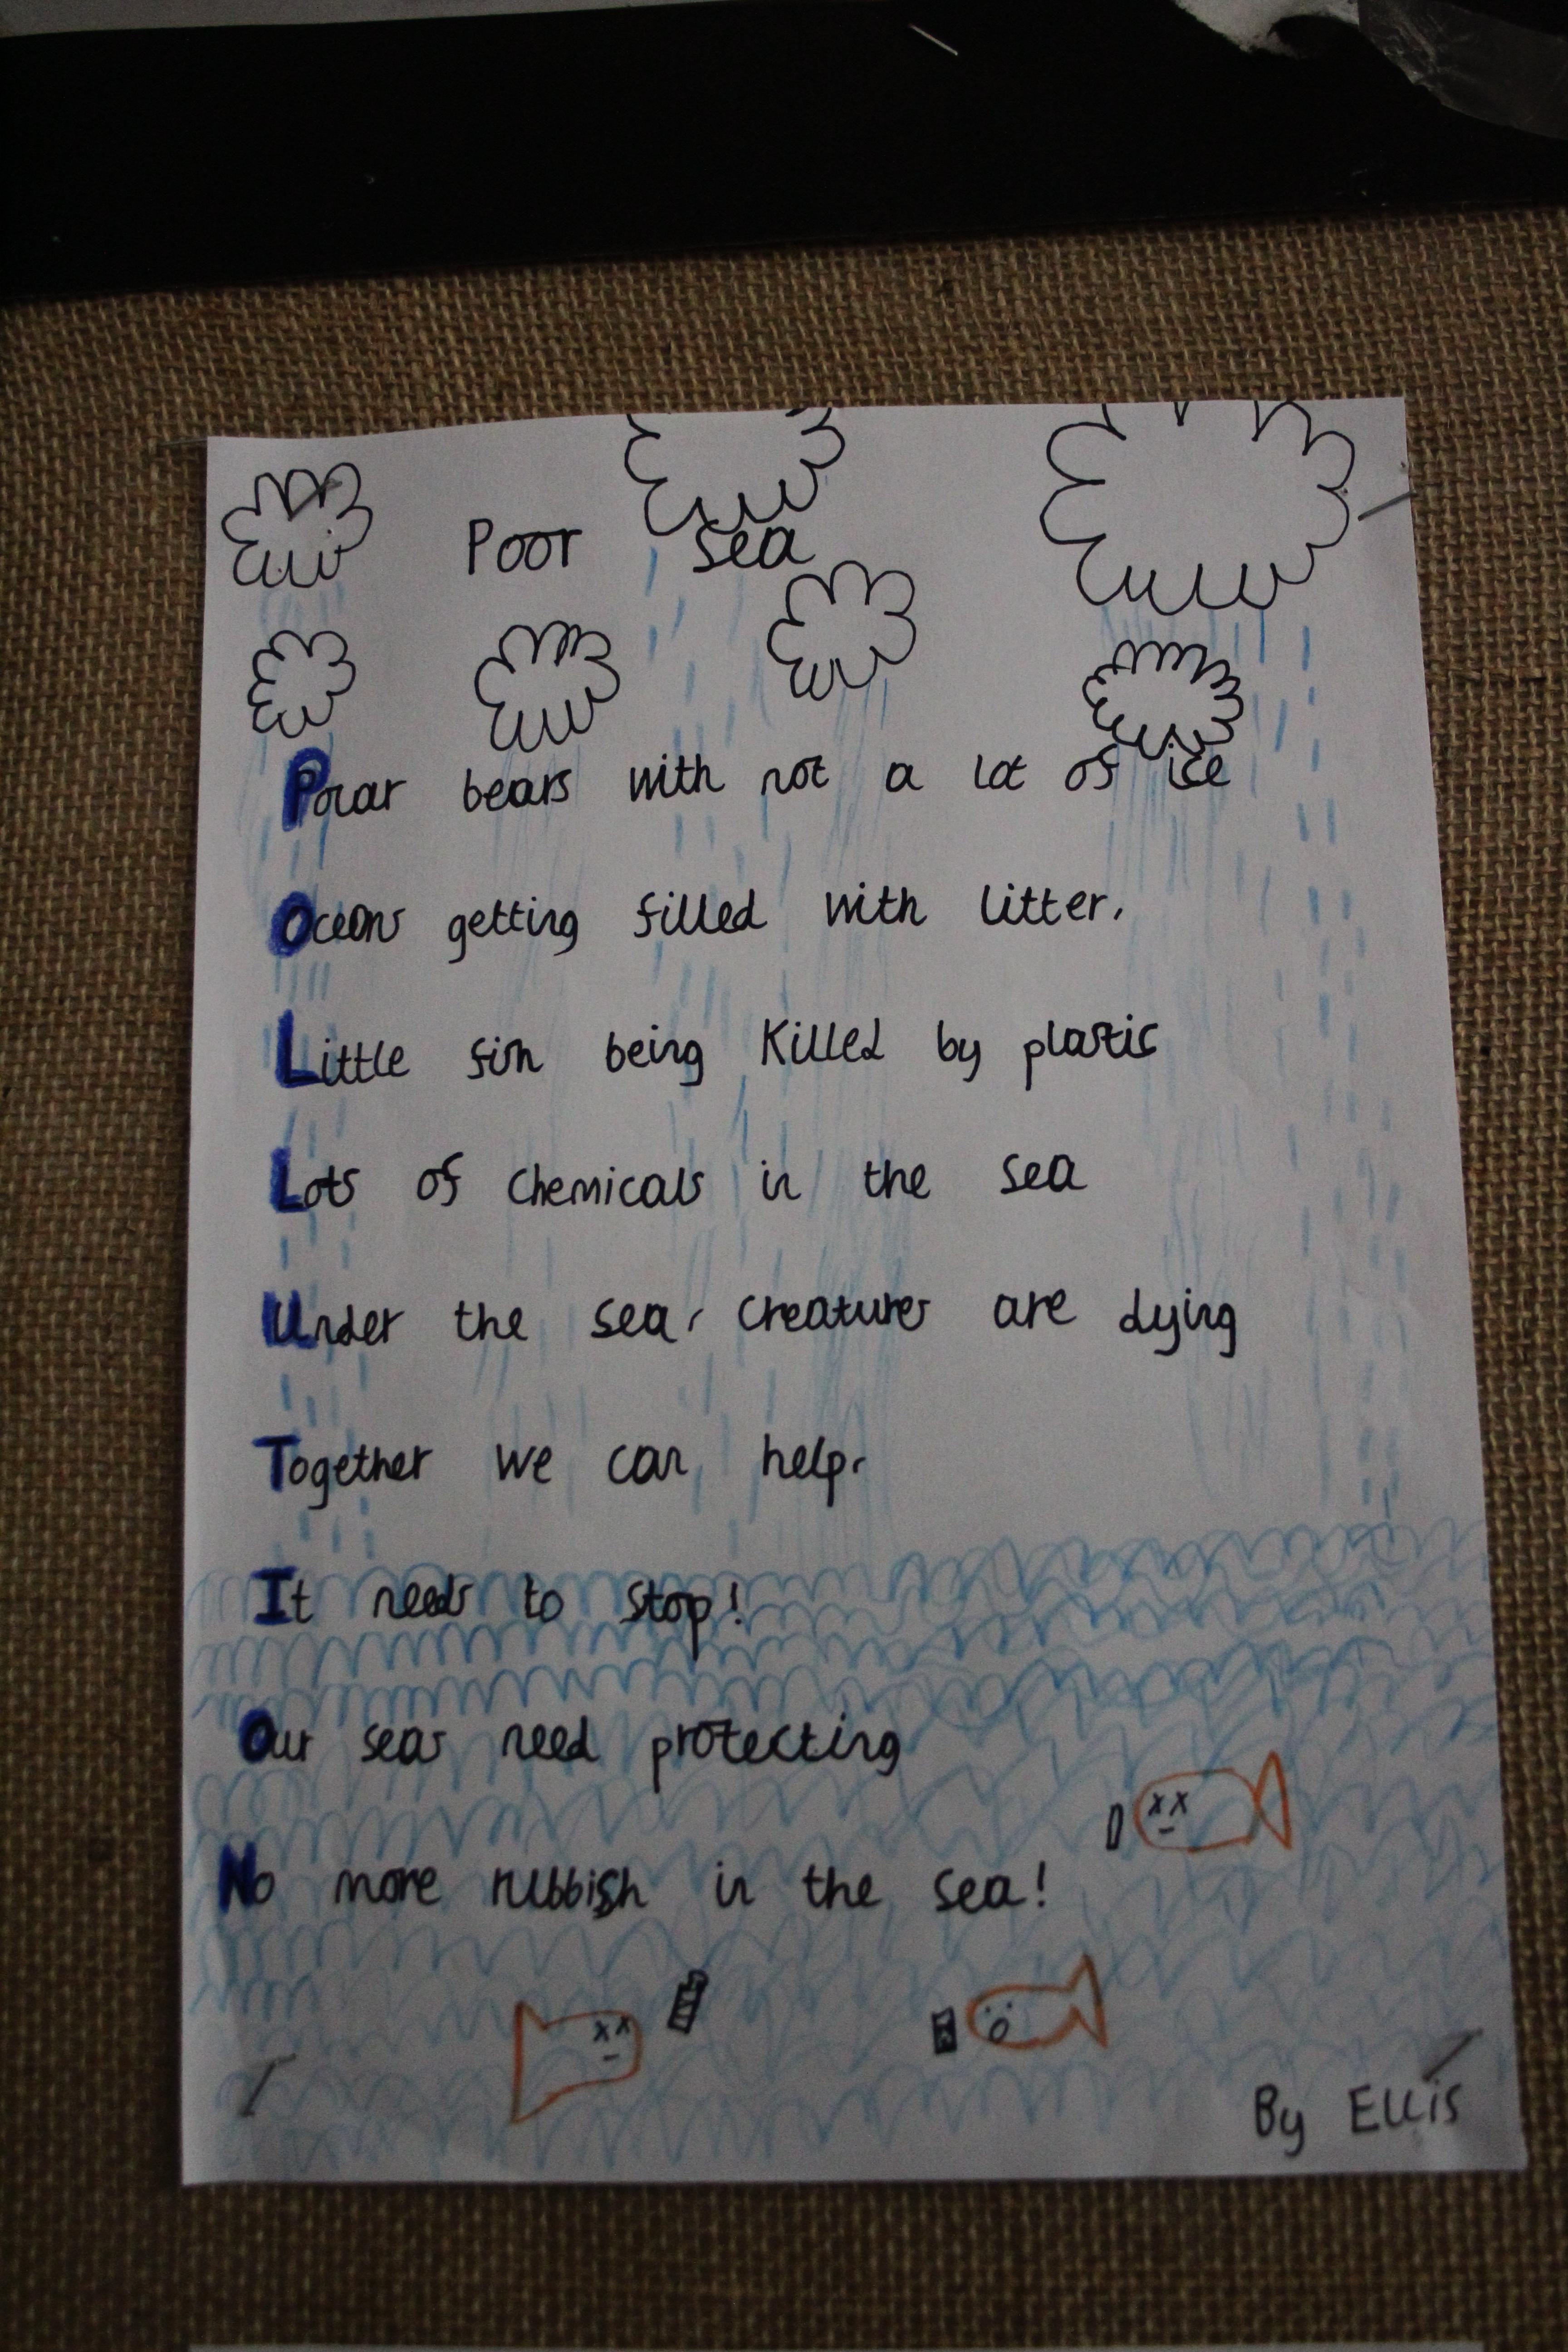 Poor Sea
Polar bears with not a lot of ice
Oceans getting filled with litter.
Little fish being killed by plastic
Lots of chemicals in the sea
Under the sea, creatures are dying
Together we can help.
It needs to stop!
Our seas need protecting
No more rubbish in the sea!
By Ellis